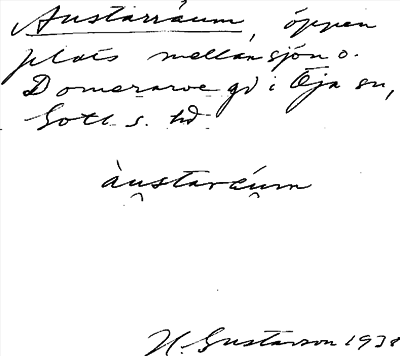 Austarráum, öppen
plats mellan sjön o.
Domerarve gd i Öja sn,
Gotl. s. hd
àustaráum
H. Gustavson 193